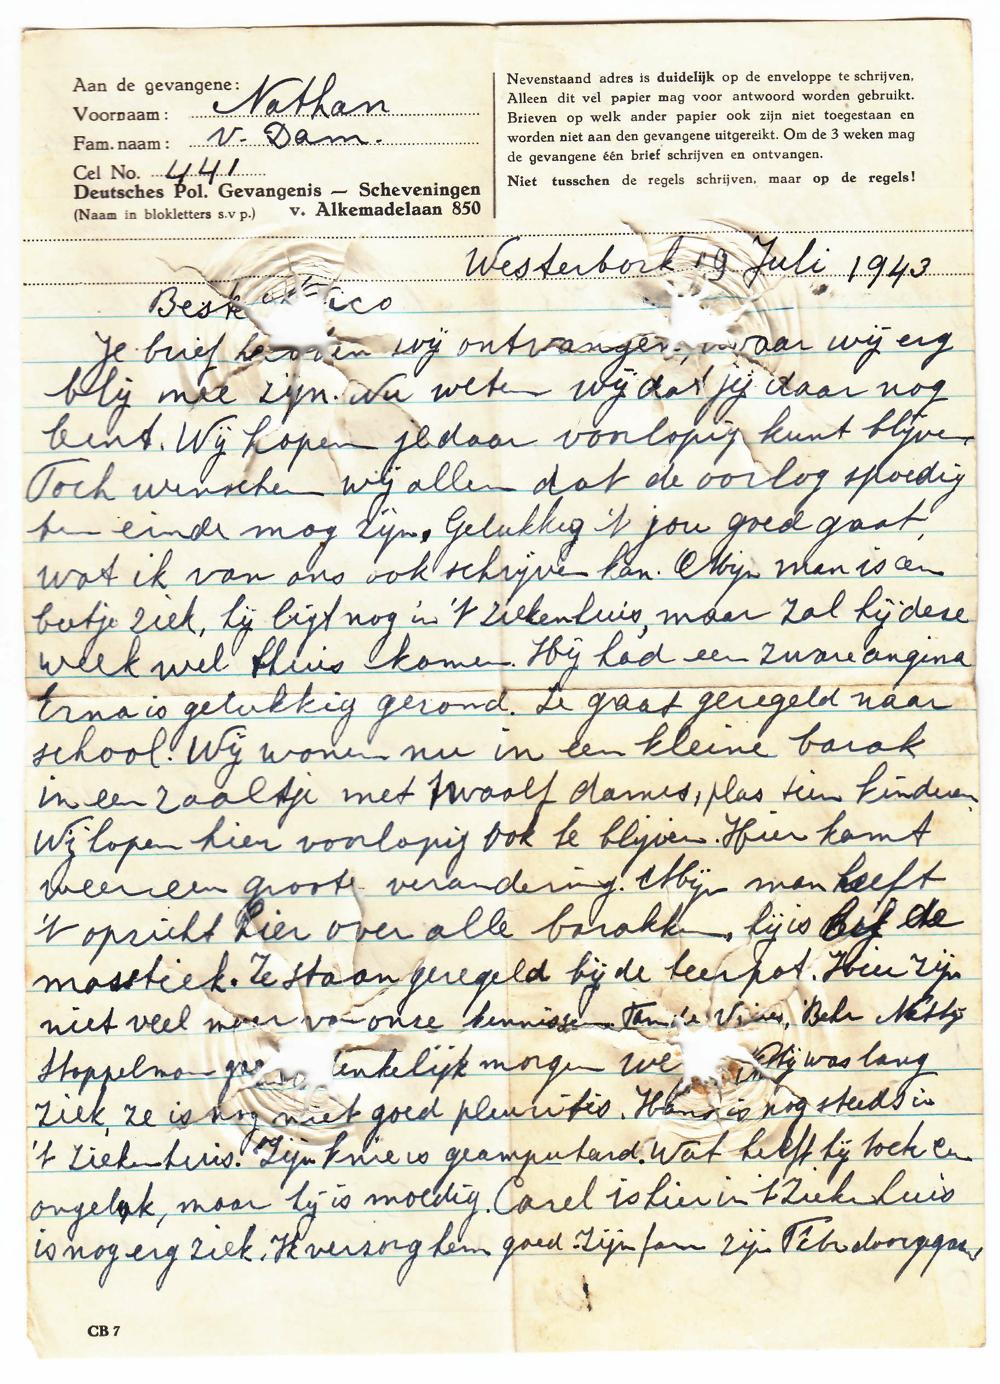 Aan de gevangene:
Voornaam: Nathan
Fam. naam: v. Dam.
Cel No. 441
Deutsches Pol. Gevangenis — Scheveningen
(Naam in blokletters s.v p.) v. Alkemadelaan 850
Nevenstaand adres is duidelijk op de enveloppe te schrijven,
Alleen dit vel papier mag voor antwoord worden gebruikt.
Brieven op welk ander papier ook zijn niet toegestaan en
worden niet aan den gevangene uitgereikt. Om de 3 weken mag
de gevangene één brief schrijven en ontvangen.
Niet tusschen de regels schrijven, maar op de regels!
Westerbork 19 Juli 1943
Beste
Je brief hebben wij ontvangen, waar wij erg
blij mee zijn. Nu weten wij dat jij daar nog
bent. Wij hopen je daar voorlopig kunt blijven.
Toch wenschen wij allen dat de oorlog spoedig
ten einde mag zijn. Gelukkig 't jou goed gaat,
wat ik van ons ook schrijven kan. Mijn man is een
beetje ziek, hij ligt nog in 't ziekenhuis, maar zal hij deze
week wel thuis komen. Hij had een zware angina
Erna is gelukkig gezond. Ze gaat geregeld naar
school. Wij wonen nu in een kleine barak
in een zaaltje met twaalf dames, plus tien kinderen.
Wij hopen hier voorlopig ook te blijven. Hier komt
weer een groote verandering. Mijn man heeft
't opzicht hier over alle barakken, hij is bij de
mastiek. Ze staan geregeld bij de teerpot. Hier zijn
niet veel meer van onze kennissen. Fam. de Vries, Behr Netty
Stoppelman morgen was lang
ziek, ze is nog niet goed pleuritis. Hans is nog steeds in
't Ziekenhuis. Zijn knie is geamputeerd. Wat heeft hij toch een
ongeluk, maar hij is moedig. Carel is hier in 't Ziekenhuis
is nog erg ziek. Ik verzorg hem goed. Zijn fam zijn Febr doorgegaan,
CB 7